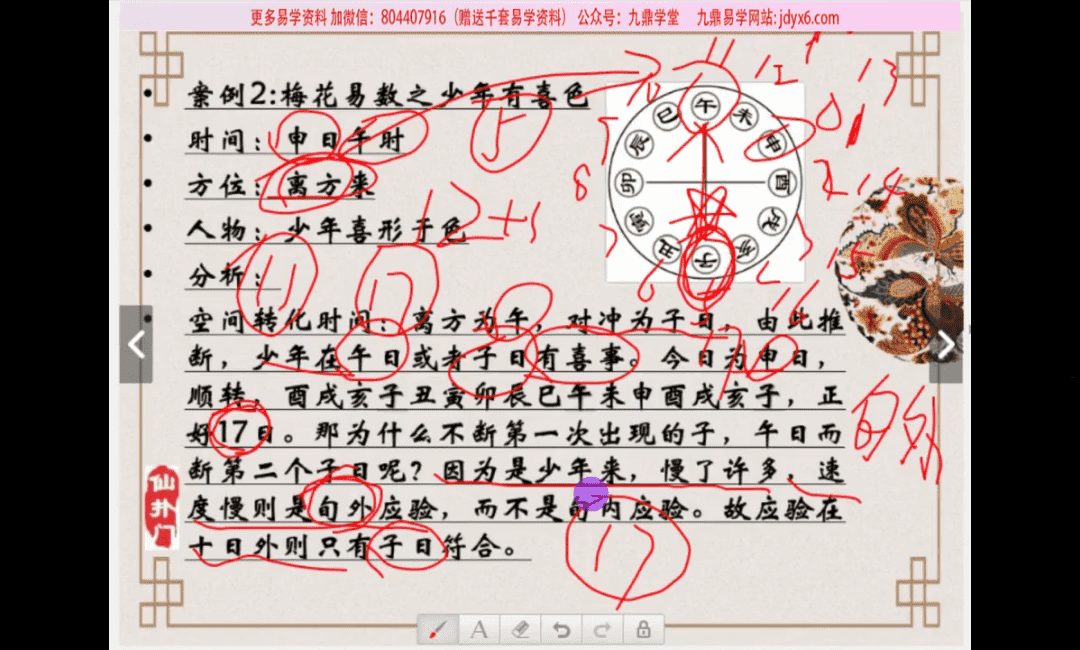 更多易学资料 加微信：804407916（赠送千套易学资料） 公众号：九鼎学堂 九鼎易学网站：jdyx6.com
• 案例2:梅花易数之少年有喜色
• 时间：申日午时
• 方位：离方来
• 人物：少年喜形于色
• 分析：
• 空间转化时间：离方为午，对冲为子日，由此推
断，少年在午日或者子日有喜事。今日为申日，
顺转，酉戌亥子丑寅卯辰巳午未申酉戌亥子，正
好17日。那为什么不断第一次出现的子，午日而
断第二个子日呢？因为是少年来，慢了许多，速
度慢则是旬外应验，而不是旬内应验。故应验在
十日外则只有子日符合。
午 未 申 酉 戌 亥 子 丑 寅 卯 辰 巳
仙井门
5
12+5
11
17
17
旬外
11
12
13
14
15
16
8
6
A